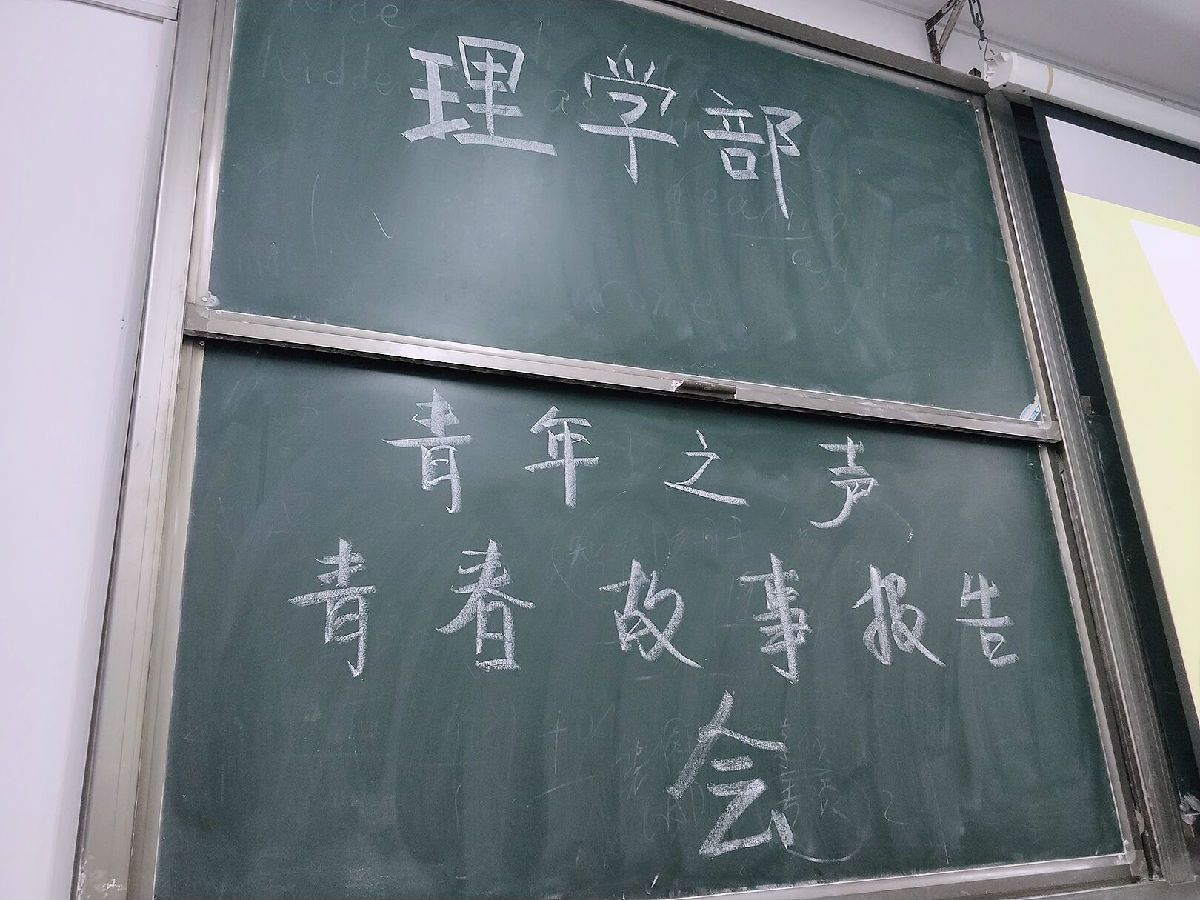 理学部
青年之声
青春故事报告
会